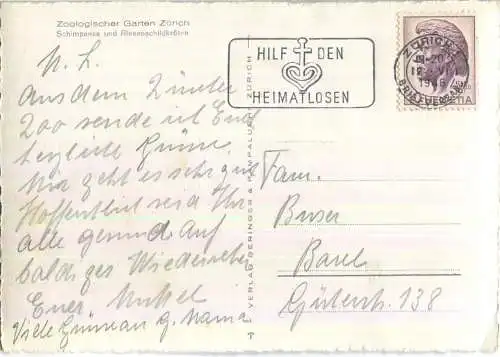 Zoologischer Garten Zürich
Schimpanse und Riesenschildkröte
M. L.
Aus dem Zürcher
Zoo sende ich Euch
herzliche Grüsse.
Mir geht es sehr gut
Hoffentlich seid Ihr
alle gesund. Auf
baldiges Wiedersehen
Euer
Viele Grüsse an g. Mama
VERLAG BERINGER & PAMPALUCHI, ZÜRICH
HILF DEN
HEIMATLOSEN
ZÜRICH
BRIEFVERSAND
Fam.
Buser
Basel
Güterstr. 138